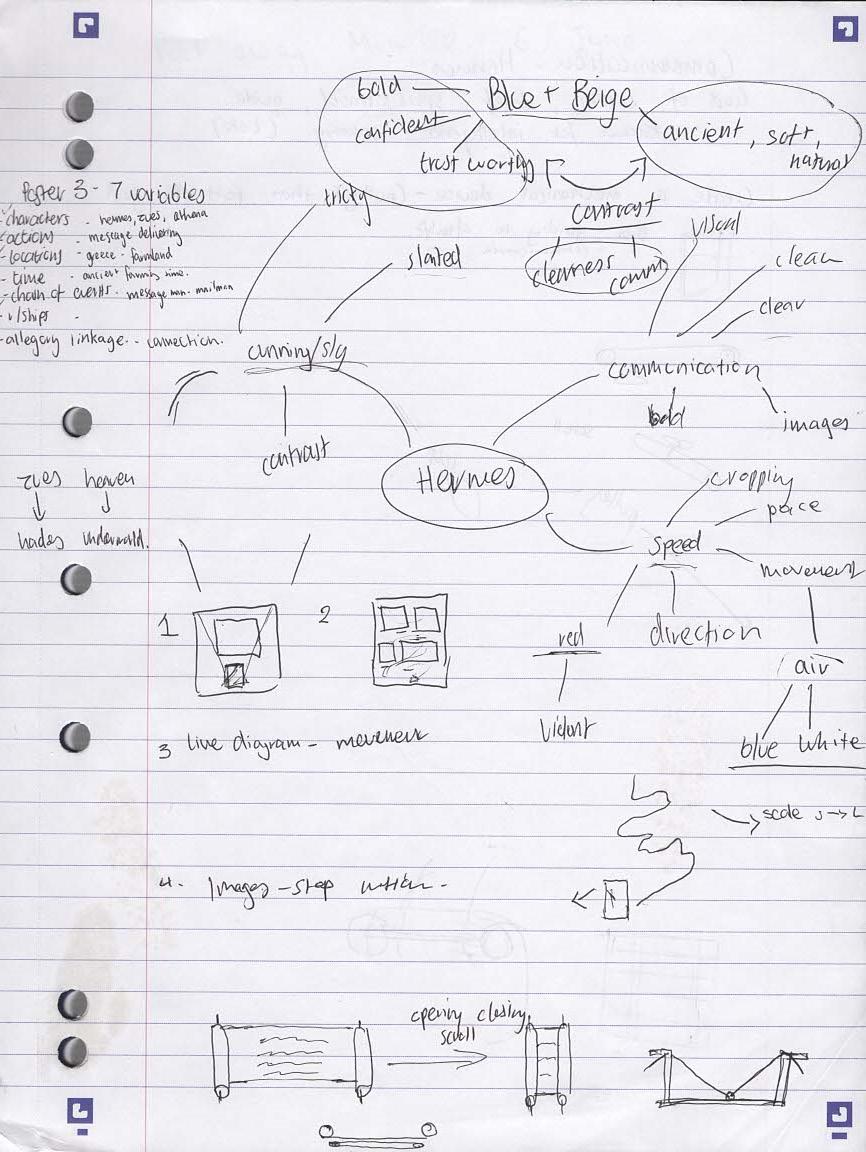 bold
Blue + Beige
confident
trust worthy
ancient, soft,
natural
Poster 3 - 7 variables
tricky
contrast
visual
- characters - hermes, zues, athena
- actions - message delivering
- locations - greece - farmland
- time - ancient farming time.
- chain of events - message man - mailman
- r/ships -
- allegory linkage - connection.
slanted
clearness
comm
clean
clear
cunning/sly
communication
bold
images
contrast
Hermes
zues heaven
hades underworld.
cropping
pace
speed
movement
1
2
red
direction
air
violent
blue white
3 line diagram - movement
scale s → L
4. Images - stop motion -
opening closing
scroll